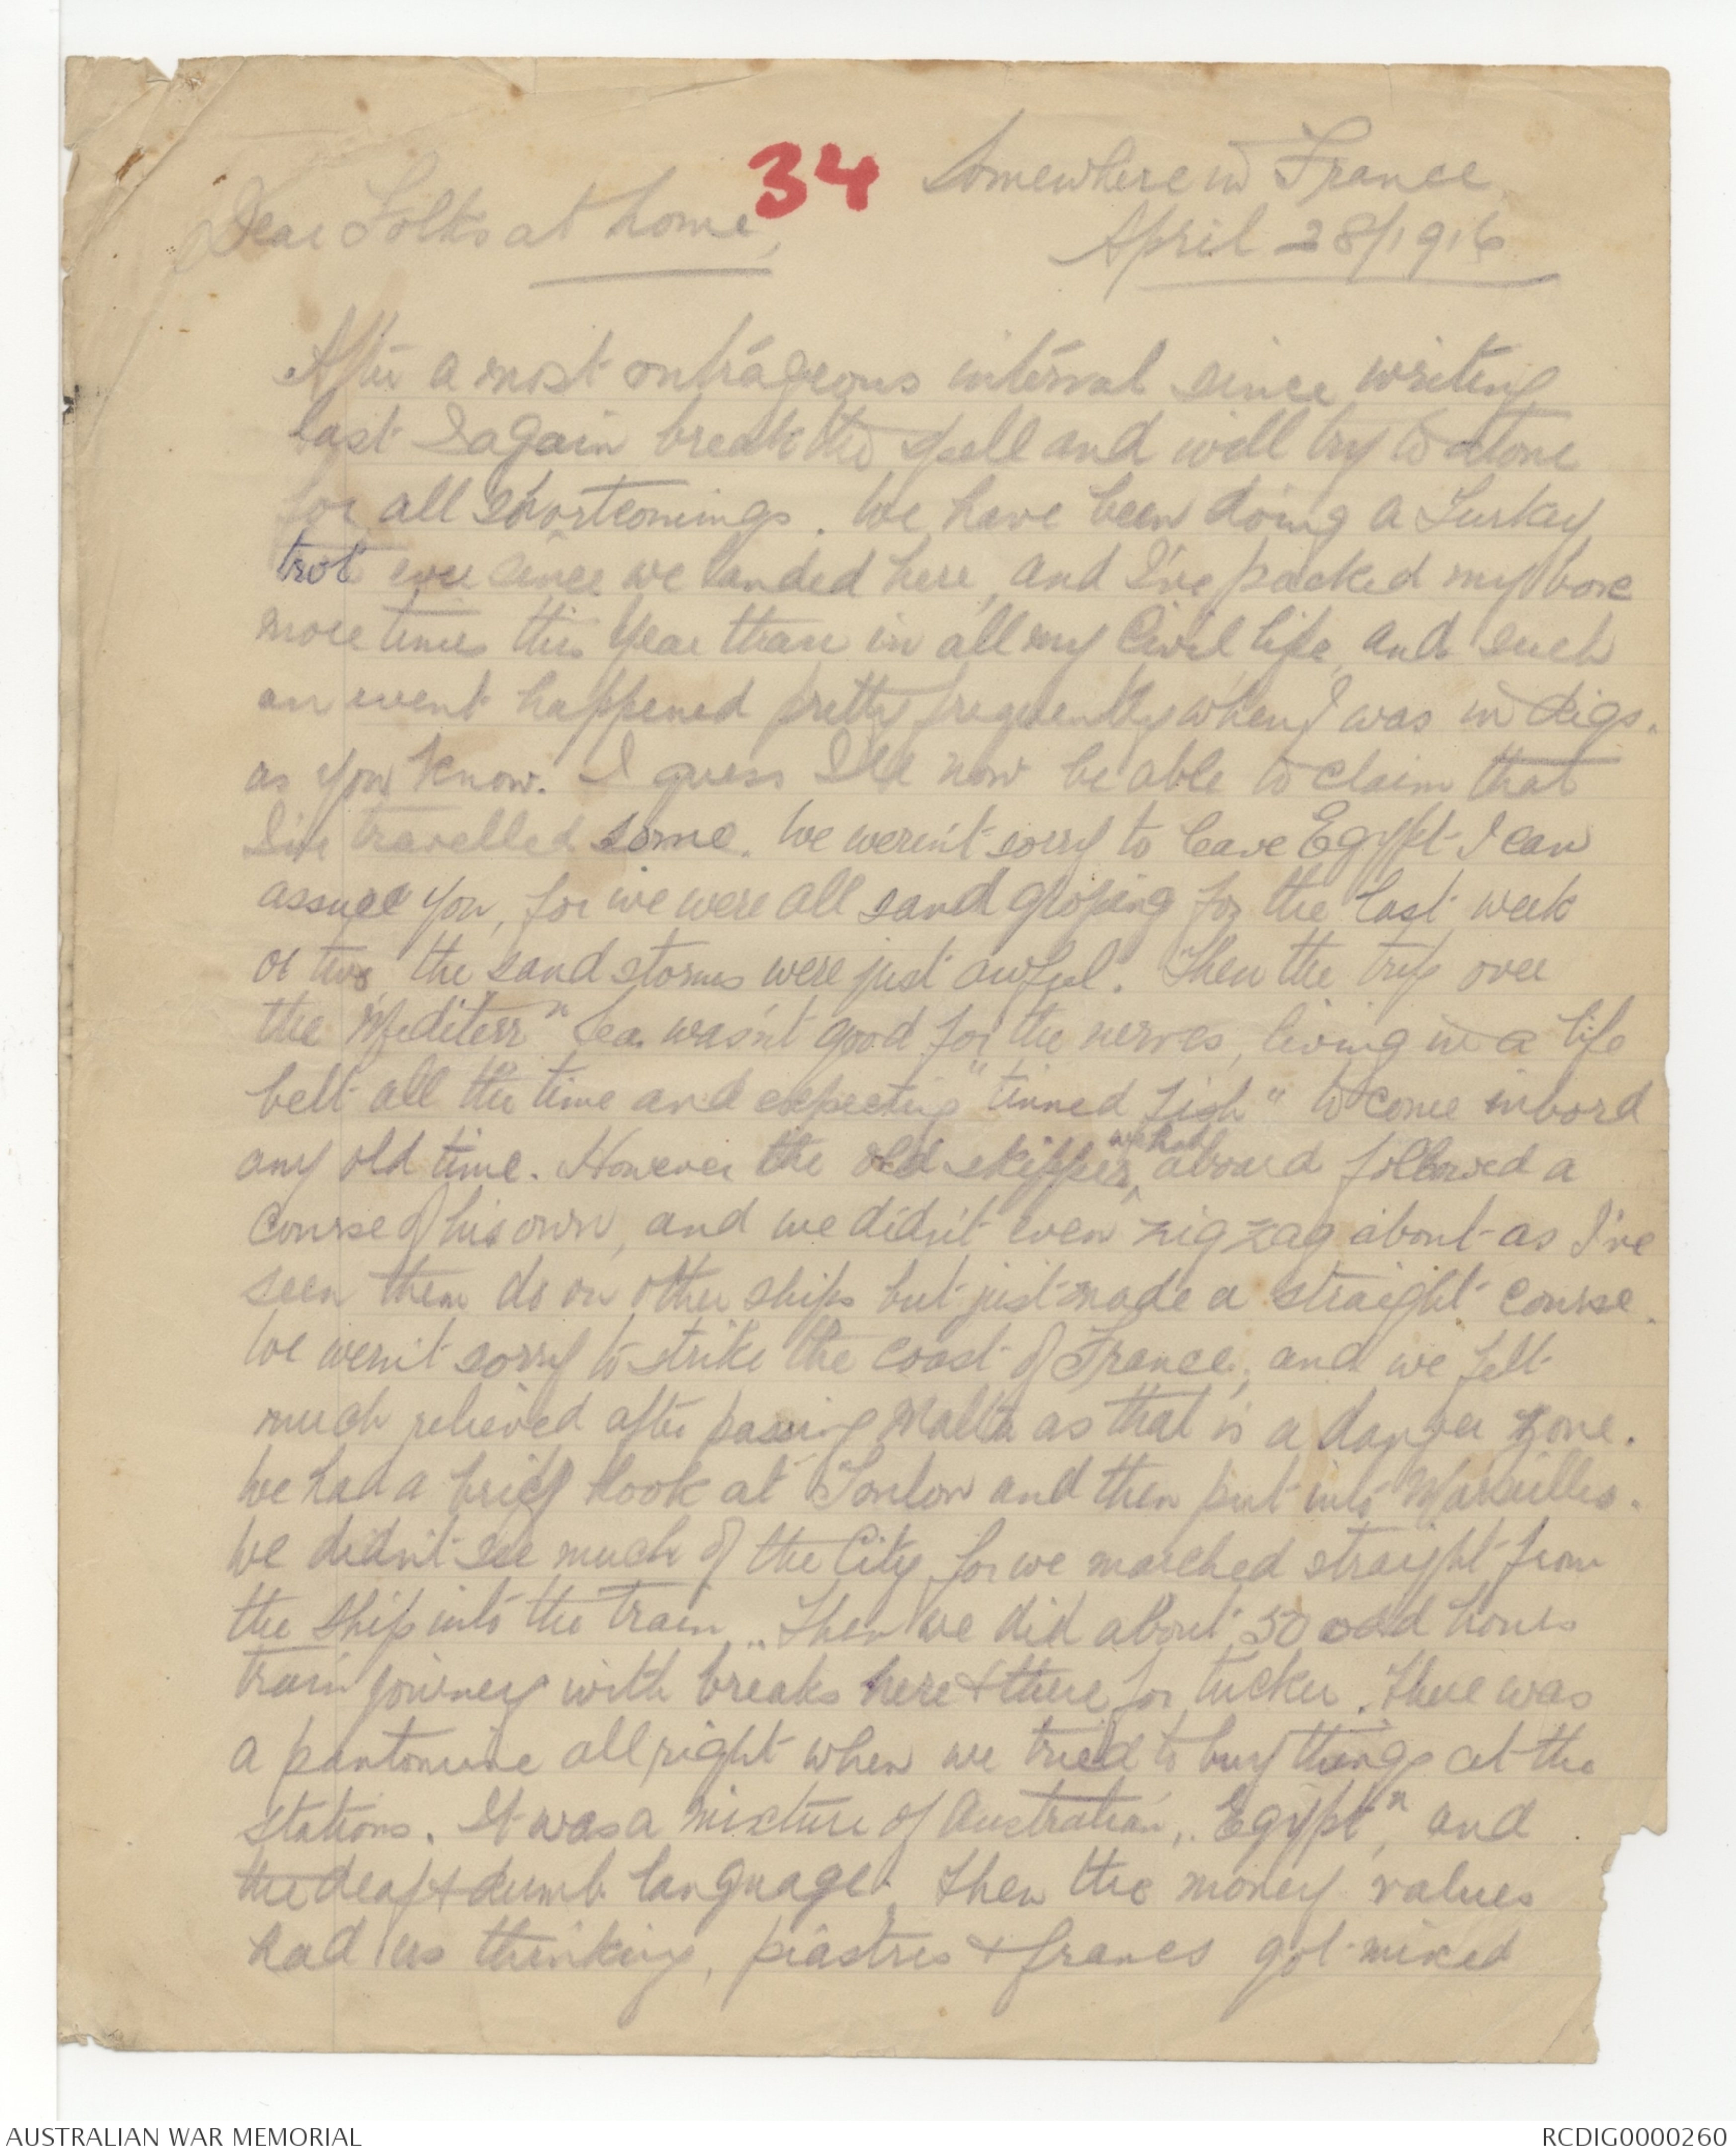 34
Somewhere in France
April 28/1916
Dear Folks at home,
After a most outrageous interval since writing
last I again break the spell and will try to atone
for all shortcomings. We have been doing a Turkey
trot ever since we landed here, and I've packed my box
more times this year than in all my Civil life, and such
an event happened pretty frequently when I was in digs.
as you know. I guess I'll now be able to claim that
I've travelled some. We weren't sorry to leave Egypt I can
assure you, for we were all sand groping for the last week
or two, the sand storms were just awful. Then the trip over
the "Mediterrn" Sea wasn't good for the nerves, living in a life
belt all the time and expecting "tinned fish" to come inbord
any old time. However the old skipper, we had aboard followed a
course of his own, and we didn't even zig zag about as I've
seen them do on other ships but just made a straight course.
We weren't sorry to strike the coast of France, and we felt
much relieved after passing Malta as that is a danger zone.
We had a brief look at Toulon and then put into Marsailles.
We didn't see much of the City for we marched straight from
the ship into the train. Then we did about 50 odd hours
train journey with breaks here & there for tucker. There was
a pantomine all right when we tried to buy things at the
stations. It was a mixture of Australian, "Egyptn", and
the deaf & dumb language. Then the money values
had us thinking, piastres & francs got mixed
AUSTRALIAN WAR MEMORIAL
RCDIG0000260